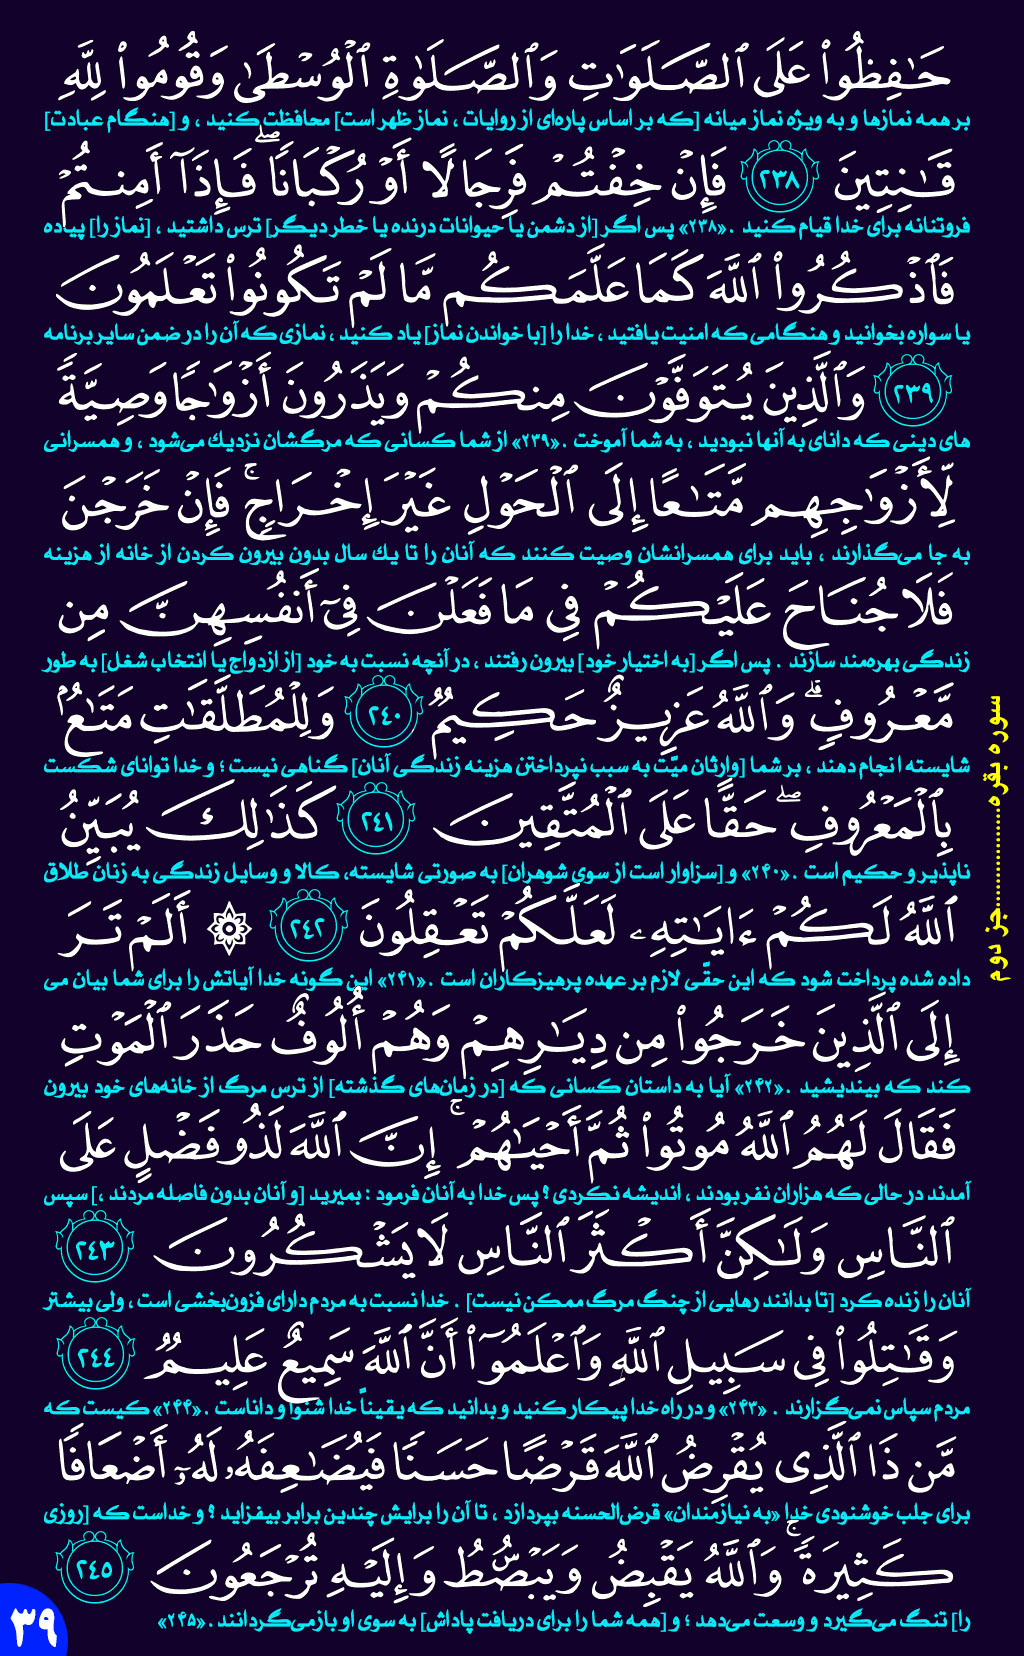 حَـٰفِظُوا۟ عَلَى ٱلصَّلَوَٰتِ وَٱلصَّلَوٰةِ ٱلْوُسْطَىٰ وَقُومُوا۟ لِلَّهِ
بر همه نمازها و به ویژه نماز میانه [که بر اساس پاره‌ای از روایات ، نماز ظهر است] محافظت کنید ، و [هنگام عبادت]
قَـٰنِتِينَ ﴿٢٣٨﴾ فَإِنْ خِفْتُمْ فَرِجَالًا أَوْ رُكْبَانًا ۖ فَإِذَآ أَمِنتُمْ
فروتنانه برای خدا قیام کنید .«۲۳۸» پس اگر [از دشمن یا حیوانات درنده یا خطر دیگر] ترس داشتید ، [نماز را] پیاده
فَٱذْكُرُوا۟ ٱللَّهَ كَمَا عَلَّمَكُم مَّا لَمْ تَكُونُوا۟ تَعْلَمُونَ
یا سواره بخوانید و هنگامی که امنیت یافتید ، خدا را [با خواندن نماز] یاد کنید ، نمازی که آن را در ضمن سایر برنامه
﴿٢٣٩﴾ وَٱلَّذِينَ يُتَوَفَّوْنَ مِنكُمْ وَيَذَرُونَ أَزْوَٰجًا وَصِيَّةً
های دینی که دانای به آنها نبودید ، به شما آموخت .«۲۳۹» از شما کسانی که مرگشان نزدیك می‌شود ، و همسرانی
لِّأَزْوَٰجِهِم مَّتَـٰعًا إِلَى ٱلْحَوْلِ غَيْرَ إِخْرَاجٍ ۚ فَإِنْ خَرَجْنَ
به جا می‌گذارند ، باید برای همسرانشان وصیت کنند که آنان را تا یك سال بدون بیرون کردن از خانه از هزینه
فَلَا جُنَاحَ عَلَيْكُمْ فِى مَا فَعَلْنَ فِىٓ أَنفُسِهِنَّ مِن
زندگی بهره‌مند سازند . پس اگر [به اختیار خود] بیرون رفتند ، در آنچه نسبت به خود [از ازدواج یا انتخاب شغل] به طور
مَّعْرُوفٍ ۗ وَٱللَّهُ عَزِيزٌ حَكِيمٌ ﴿٢٤٠﴾ وَلِلْمُطَلَّقَـٰتِ مَتَـٰعٌۢ
شایسته انجام دهند ، بر شما [وارثان میّت به سبب نپرداختن هزینه زندگی آنان] گناهی نیست ؛ و خدا توانای شکست
بِٱلْمَعْرُوفِ ۖ حَقًّا عَلَى ٱلْمُتَّقِينَ ﴿٢٤١﴾ كَذَٰلِكَ يُبَيِّنُ
ناپذیر و حکیم است .«۲۴۰» و [سزاوار است از سوی شوهران] به صورتی شایسته، کالا و وسایل زندگی به زنان طلاق
ٱللَّهُ لَكُمْ ءَايَـٰتِهِۦ لَعَلَّكُمْ تَعْقِلُونَ ﴿٢٤٢﴾ ۞ أَلَمْ تَرَ
داده شده پرداخت شود که این حقّی لازم بر عهده پرهیزکاران است .«۲۴۱» این گونه خدا آیاتش را برای شما بیان می
إِلَى ٱلَّذِينَ خَرَجُوا۟ مِن دِيَـٰرِهِمْ وَهُمْ أُلُوفٌ حَذَرَ ٱلْمَوْتِ
کند که بیندیشید .«۲۴۲» آیا به داستان کسانی که [در زمان‌های گذشته] از ترس مرگ از خانه‌های خود بیرون
فَقَالَ لَهُمُ ٱللَّهُ مُوتُوا۟ ثُمَّ أَحْيَـٰهُمْ ۚ إِنَّ ٱللَّهَ لَذُو فَضْلٍ عَلَى
آمدند در حالی که هزاران نفر بودند ، اندیشه نکردی ؟ پس خدا به آنان فرمود : بمیرید [و آنان بدون فاصله مردند ،] سپس
ٱلنَّاسِ وَلَـٰكِنَّ أَكْثَرَ ٱلنَّاسِ لَا يَشْكُرُونَ ﴿٢٤٣﴾
آنان را زنده کرد [تا بدانند رهایی از چنگ مرگ ممکن نیست] . خدا نسبت به مردم دارای فزون‌بخشی است ، ولی بیشتر
وَقَـٰتِلُوا۟ فِى سَبِيلِ ٱللَّهِ وَٱعْلَمُوٓا۟ أَنَّ ٱللَّهَ سَمِيعٌ عَلِيمٌ ﴿٢٤٤﴾
مردم سپاس نمی‌گزارند . «۲۴۳» و در راه خدا پیکار کنید و بدانید که یقیناً خدا شنوا و داناست .«۲۴۴» کیست که
مَّن ذَا ٱلَّذِى يُقْرِضُ ٱللَّهَ قَرْضًا حَسَنًا فَيُضَـٰعِفَهُۥ لَهُۥٓ أَضْعَافًا
برای جلب خوشنودی خدا «به نیازمندان» قرض‌الحسنه بپردازد ، تا آن را برایش چندین برابر بیفزاید ؟ و خداست که [روزی
كَثِيرَةً ۚ وَٱللَّهُ يَقْبِضُ وَيَبْصُۜطُ وَإِلَيْهِ تُرْجَعُونَ ﴿٢٤٥﴾
را] تنگ می‌گیرد و وسعت می‌دهد ؛ و [همه شما را برای دریافت پاداش] به سوی او بازمی‌گردانند .«۲۴۵»
سوره بقره....................جز دوم
۳۹